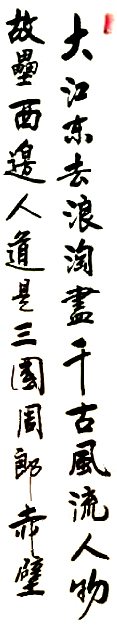 大江东去浪淘盡千古風流人物
故壘西邊人道是三國周郎赤壁